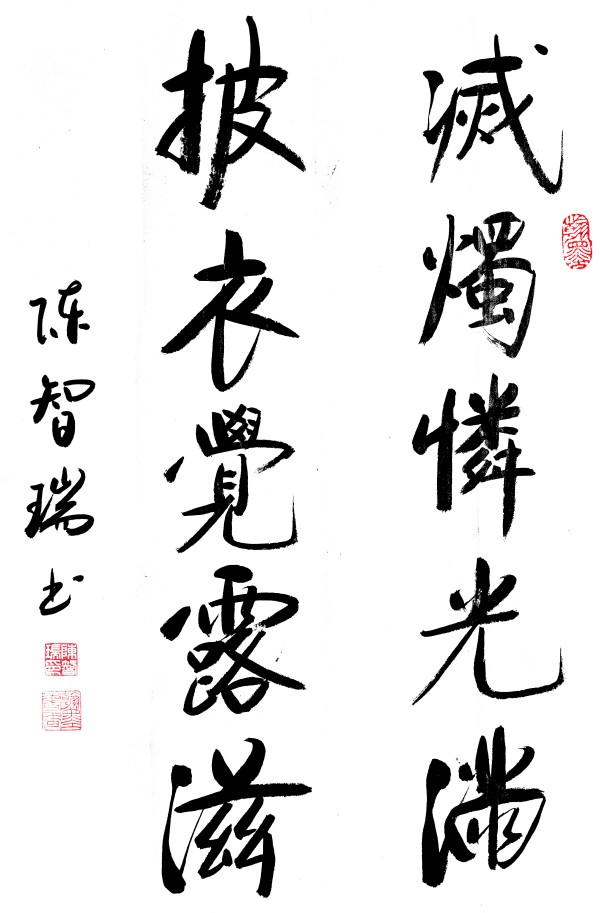 滅燭憐光滿
披衣覺露滋
陈智瑞书